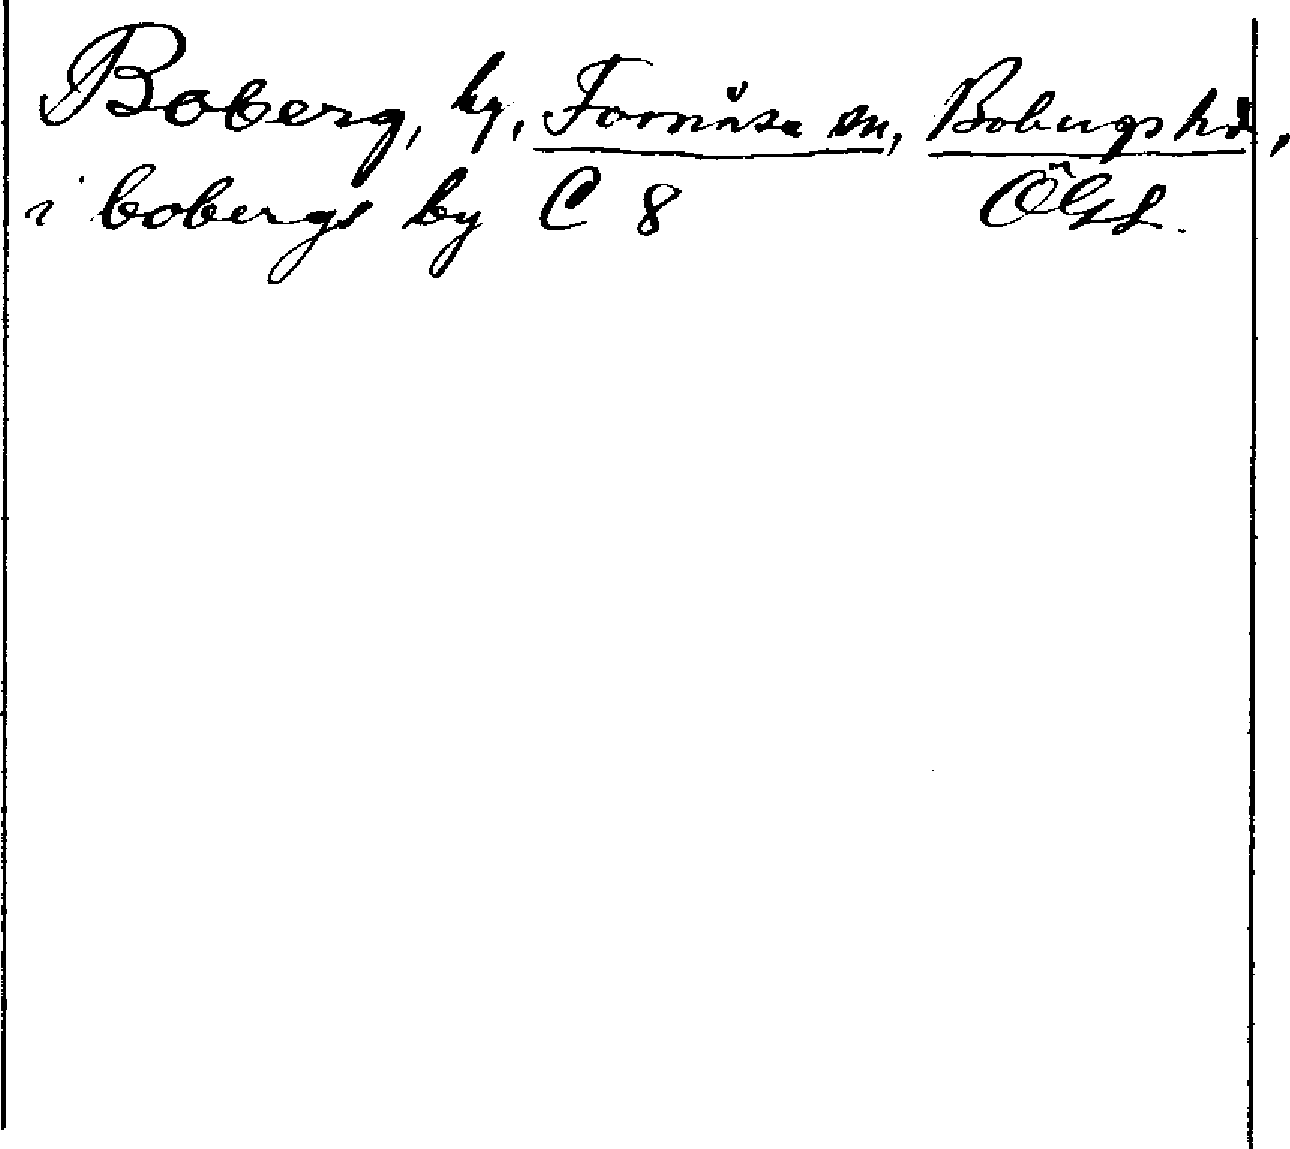 Boberg, by, Fornåsa sn, Bobergs hd,
i bobergs by C 8 ÖGL.